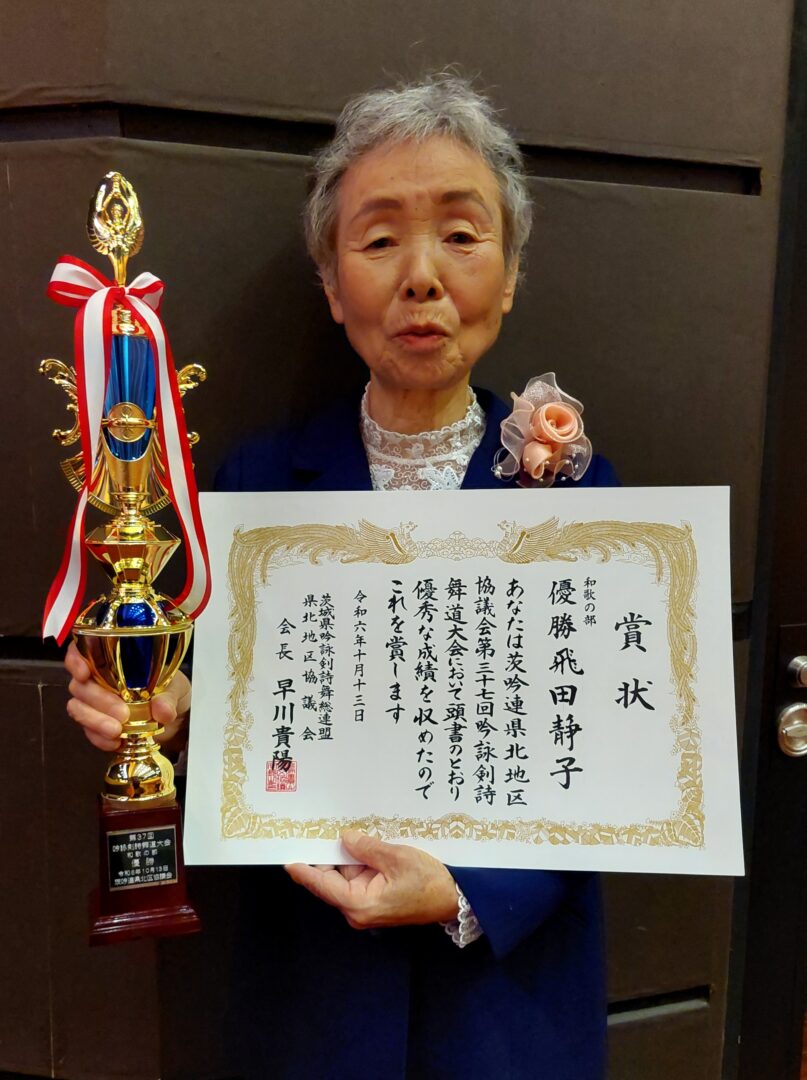 賞状
和歌の部
優勝 飛田静子
あなたは茨吟連県北地区
協議会第三十七回吟詠剣詩
舞道大会において頭書のとおり
優秀な成績を収めたので
これを賞します
令和六年十月十三日
茨城県吟詠剣詩舞総連盟
県北地区協議会
会長 早川貴陽
第37回
吟詠剣詩舞道大会
和歌の部
優勝
令和6年10月13日
茨吟連県北区協議会